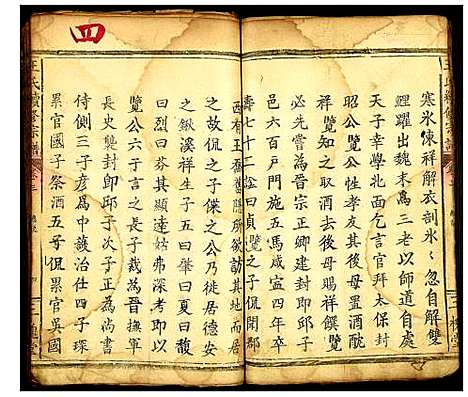 王氏續修宗譜
寒氷凍祥解衣剖氷氷忽自解雙
鯉躍出魏末爲三老以師道自處
天子幸學北面乞言累官拜太保
昭公覽公性孝友其後母遇祥酖
祥覽知之母死去後母賜祥饌覽
必先嘗爲晉宗正卿進封即邱子
邑六百戶門施五馬咸寕四年卒
壽七十二諡曰貞覽之子侃開郡
西有王喬舊隱所欲訪其地而居
之故侃之子傑之公乃徙居德安
之鍬溪祥生子五曰肇曰夏曰馥
曰烈曰芬其顯達姑弗深考覽生
覽公六子言子裁之公爲晉撫軍
長史襲封即邱子次子正爲尚書
侍側三子彦爲中護治仕四子琛
累官國子祭酒五母侃累官吳國
王氏續修宗譜
卷三
四